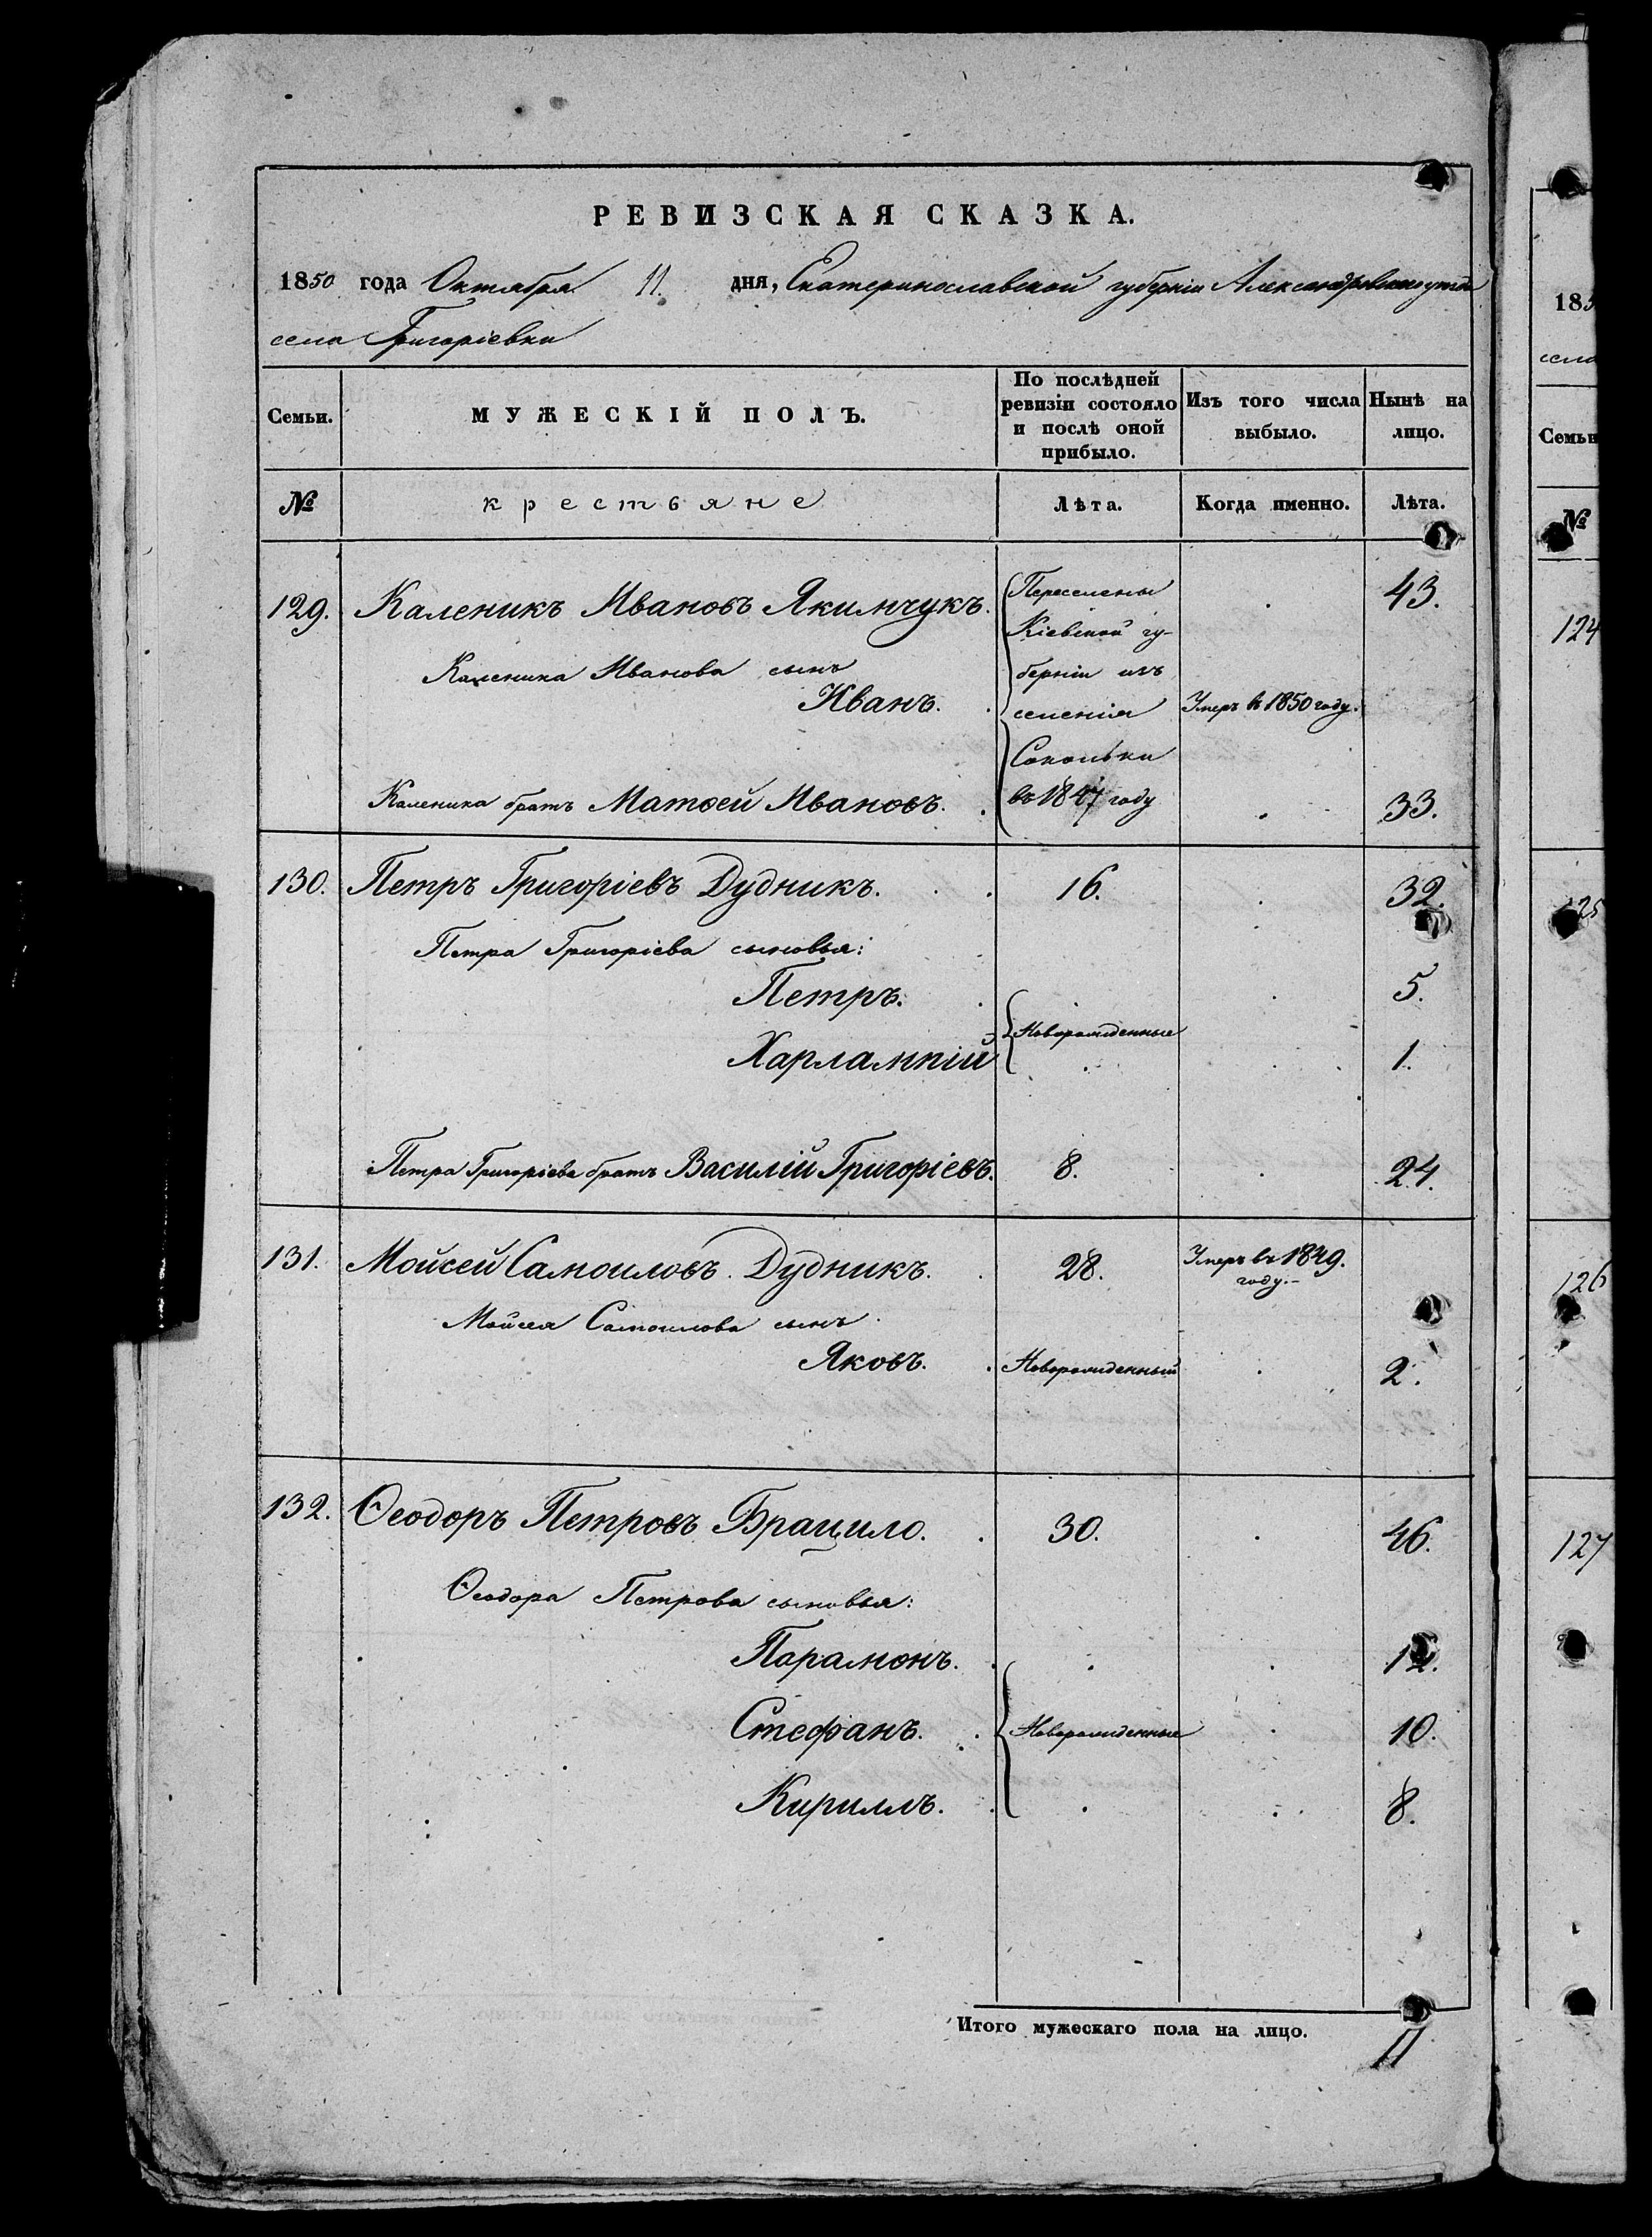 РЕВИЗСКАЯ СКАЗКА.
1850 года Октября 11 дня, Екатеринославской губерніи Александровскаго уѣзда
села Григоріевки
Семьи. МУЖЕСКІЙ ПОЛЪ. По послѣдней ревизіи состояло и послѣ оной прибыло. Изъ того числа выбыло. Нынѣ на лицо.
№ крестьяне Лѣта. Когда именно. Лѣта.
129. Каленикъ Ивановъ Якимчукъ. Переселены 43.
Кіевской гу-
Каленика Иванова сынъ берніи изъ
Иванъ. селенія Умеръ въ 1850 году.
Сокольки
Каленика братъ Матѳей Ивановъ. въ 1847 году 33.
130. Петръ Григоріевъ Дудникъ. 16. 32.
Петра Григоріева сыновья:
Петръ. 5.
Новорожденные
Харлампій 1.
Петра Григоріева братъ Василій Григоріевъ. 8. 24.
131. Мойсей Самоиловъ Дудникъ. 28. Умеръ въ 1849.
году.-
Мойсея Самоилова сынъ
Яковъ. Новорожденный 2.
132. Ѳеодоръ Петровъ Брацило. 30. 46.
Ѳеодора Петрова сыновья:
Парамонъ. 12.
Стефанъ. Новорожденные 10.
Кириллъ. 8.
Итого мужескаго пола на лицо. 11
185
село
Семьи
№
124
125
126
127